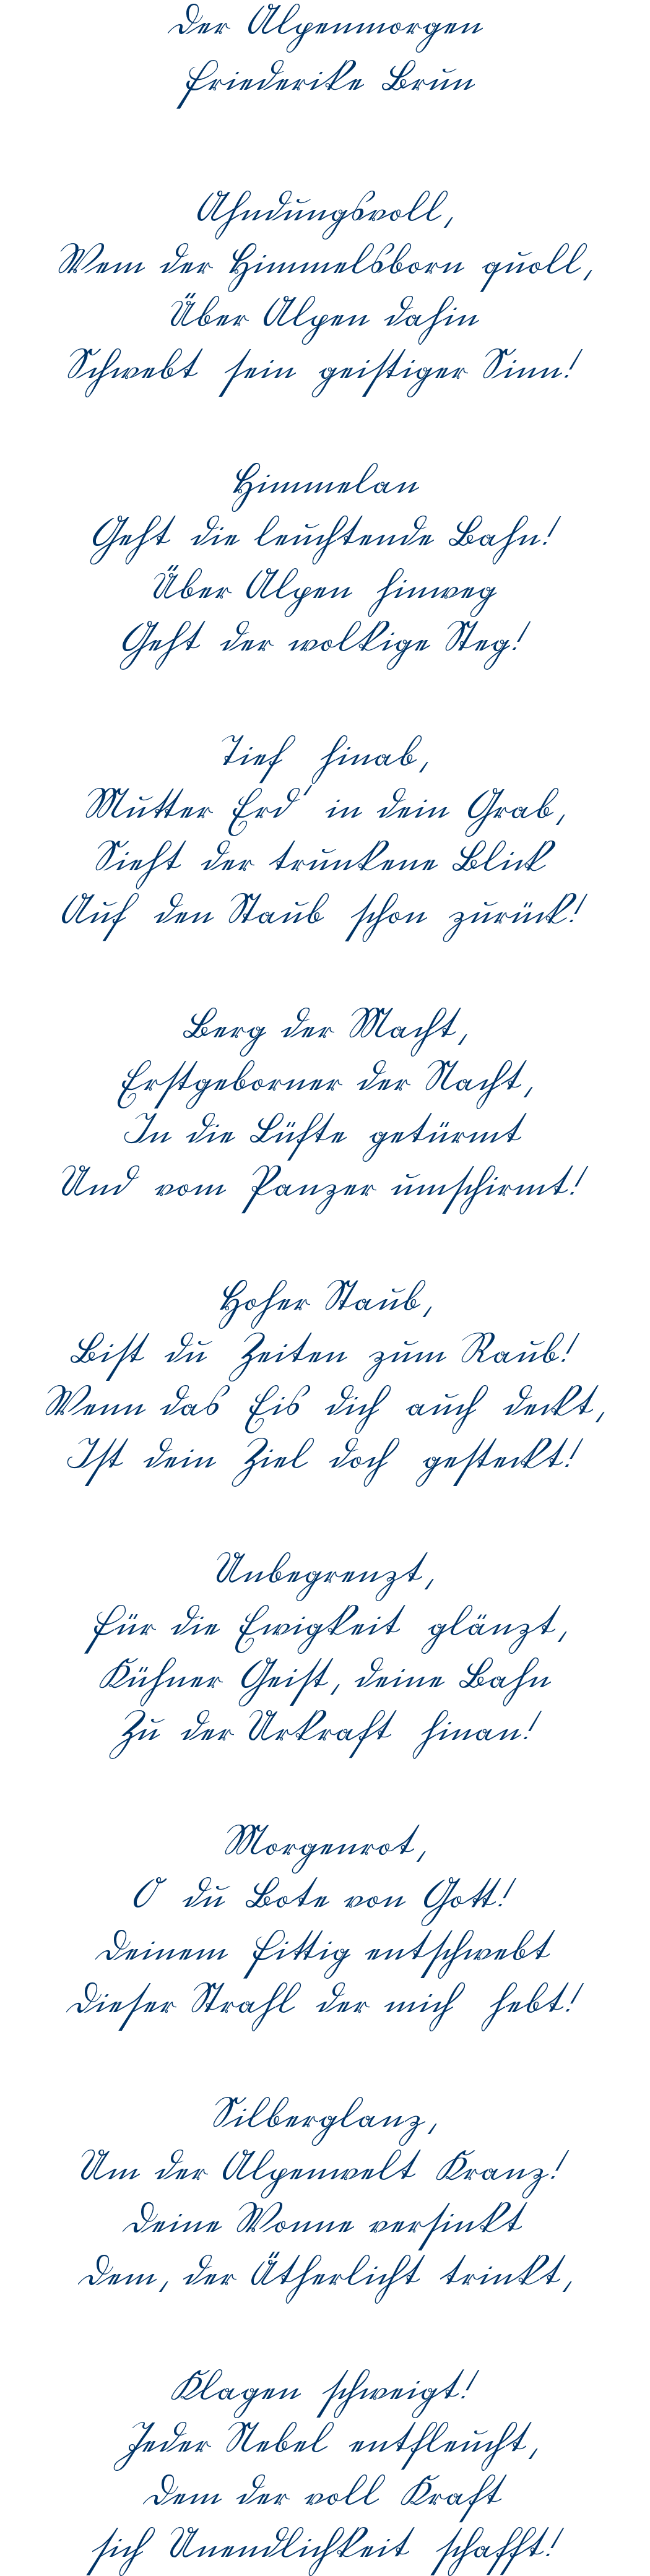 Der Alpenmorgen
Friederike Brun
Ahndungsvoll,
Wem der Himmelsborn quoll,
Über Alpen dahin
Schwebt sein geistiger Sinn!
Himmelan
Geht die leuchtende Bahn!
Über Alpen hinweg
Geht der wolkige Steg!
Tief hinab,
Mutter Erd' in dein Grab,
Sieht der trunkene Blick
Auf den Staub schon zurück!
Berg der Macht,
Erstgeborner der Nacht,
In die Lüfte getürmt
Und vom Panzer umschirmt!
Hoher Staub,
Bist du Zeiten zum Raub!
Wenn das Eis dich auch deckt,
Ist dein Ziel doch gesteckt!
Unbegrenzt,
Für die Ewigkeit glänzt,
Kühner Geist, deine Bahn
Zu der Urkraft hinan!
Morgenrot,
O du Bote von Gott!
Deinem Fittig entschwebt
Dieser Strahl der mich hebt!
Silberglanz,
Um der Alpenwelt Kranz!
Deine Wonne versinkt
Dem, der Ätherlicht trinkt,
Klagen schweigt!
Jeder Nebel entfleucht,
Dem der voll Kraft
sich Unendlichkeit schafft!